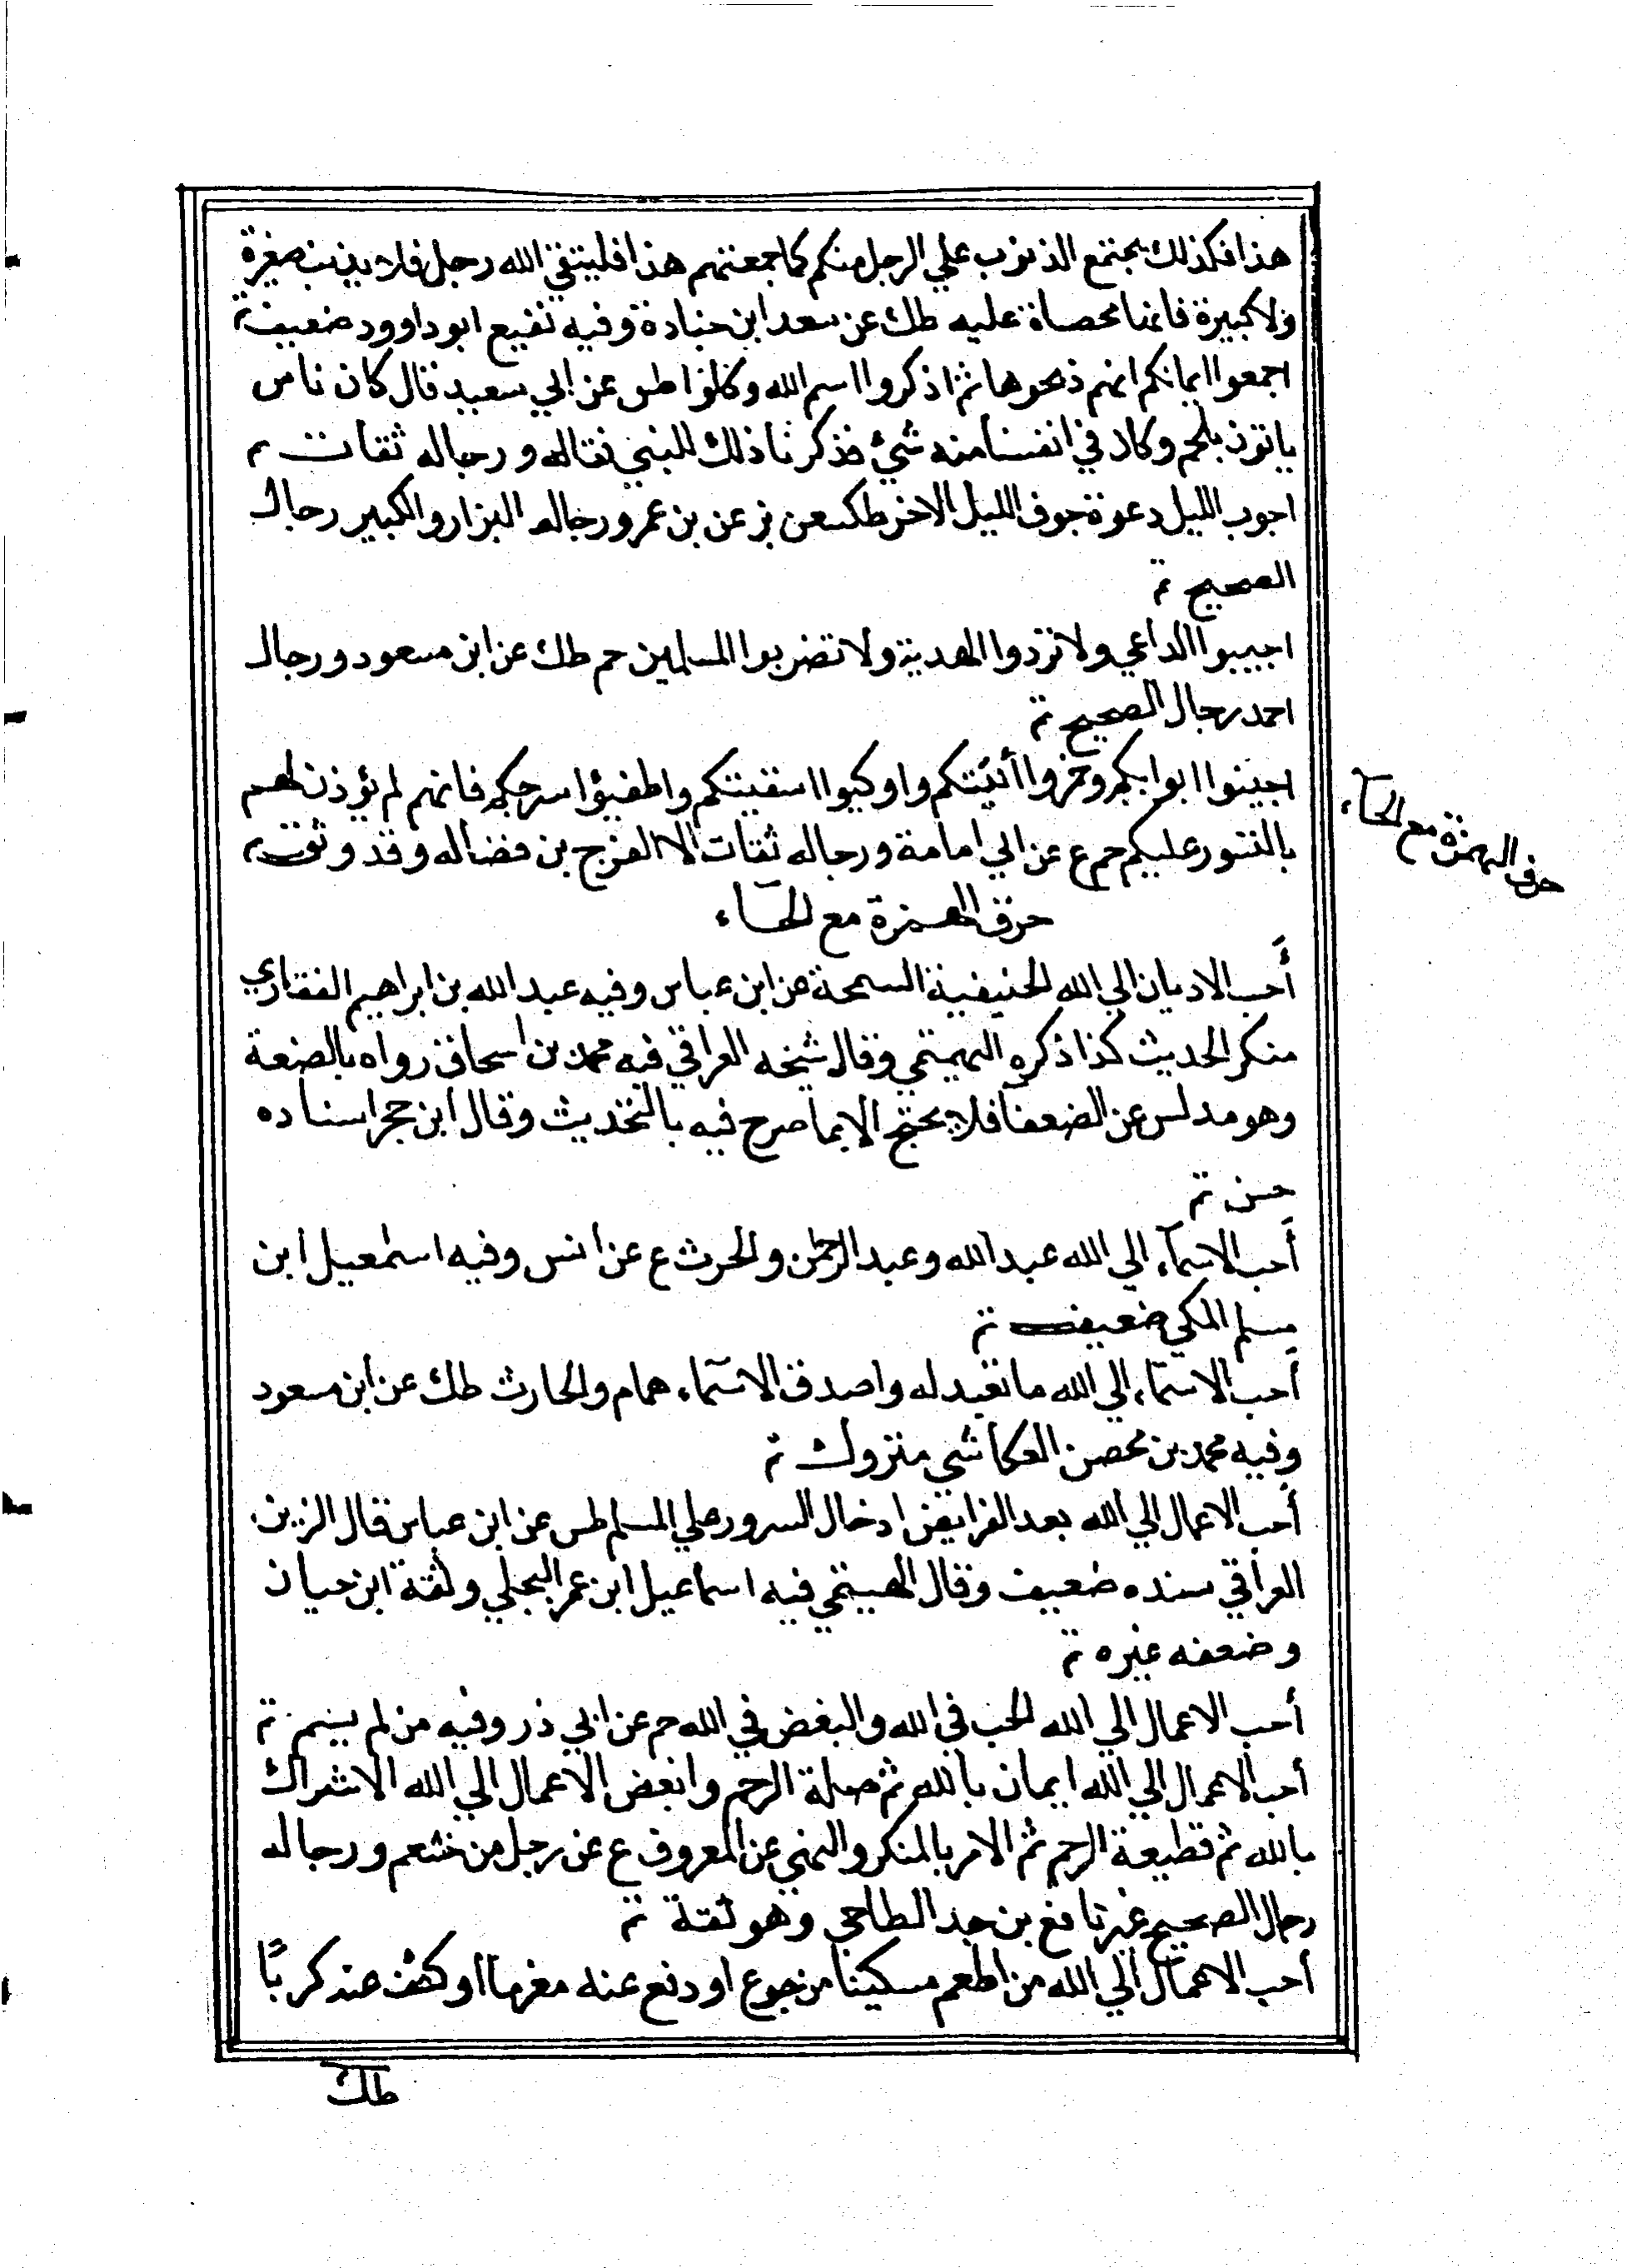 هذا فكذلك تجتمع الذنوب علي الرجل منكم كما جمعتهم هذا فليتقي الله رجل فلا يذنب صغيرة
ولا كبيرة فانها محصاة عليه طك عن سعد ابن جنادة وفيه نفيع ابو داوود ضعيف تم
اجمعوا ايمانكم انهم ذبحوها ثم اذكروا اسم الله وكلوا طس عن ابي سعيد قال كان ناس
ياتون بلحم وكان في انفسنا منه شيء فذكرنا ذلك للنبي فقاله ورجاله ثقات تم
اجوب الليل دعوة جوف الليل الاخر طكسعن بز عن بن عمر ورجاله البزار والكبير رجال
الصحيح تم
اجيبوا الداعي ولا تردوا الهدية ولا تضربوا المسلمين حم طك عن ابن مسعود ورجال
احمد رجال الصحيح تم
اجيفوا ابوابكم وخمروا أنيتكم واوكيوا اسقيتكم واطفيؤا سرجكم فانهم لم يؤذن لهم
بالتسور عليكم حم ع عن ابي امامة ورجاله ثقات الا الفرج بن فضاله وقد وثق تم
حرف الهمزة مع الحآء
حرف الهمزة مع الحآء
أحب الاديان الي الله الحنيفية السمحة عن ابن عباس وفيه عبد الله بن ابراهيم الغفاري
منكر الحديث كذا ذكره الهيتمي وقال شيخه العراقي فيه محمد بن اسحاق رواه بالضعة
وهو مدلس عن الضعفا فلا يحتج الا بما صرح فيه بالتحديث وقال ابن حجر اسناده
حسن تم
أحب الاسمآء الي الله عبد الله وعبد الرحمن والحرث ع عن انس وفيه اسمعيل ابن
مسلم المكي ضعيف تم
أحب الاسمآء الي الله ما تعبد له واصدق الاسمآء همام والحارث طك عن ابن مسعود
وفيه محمد بن محصن العكاشي متروك تم
أحب الاعمال الي الله بعد الفرايض ادخال السرور علي المسلم طس عن ابن عباس قال الزين
العراقي سنده ضعيف وقال الهيتمي فيه اسماعيل ابن عمر البجلي وثقة ابن حبان
وضعفه غيره تم
أحب الاعمال الي الله الحب في الله والبغض في الله حم عن ابي ذر وفيه من لم يسم تم
أحب الاعمال الي الله ايمان بالله ثم صلة الرحم وابغض الاعمال الي الله الاشراك
بالله ثم قطيعة الرحم ثم الامر بالمنكر والنهي عن المعروف ع عن رجل من خثعم ورجاله
رجال الصحيح غير نافع بن جد الطاحي وهو ثقة تم
أحب الاعمال الي الله من اطعم مسكينا من جوع او دفع عنه مغرما او كشف عند كربًا
طك